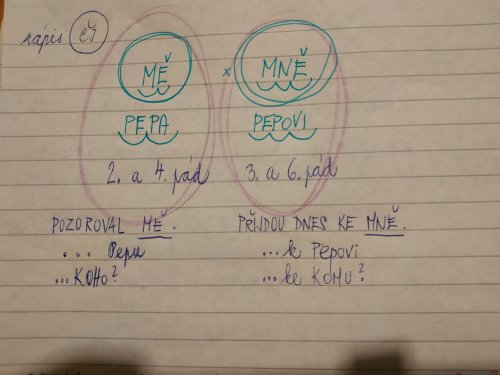 zápis čj
MĚ × MNĚ
PEPA PEPOVI
2. a 4. pád 3. a 6. pád
POZOROVAL MĚ. PŘIJDOU DNES KE MNĚ.
... Pepu ...k Pepovi
...KOHO? ...ke KOMU?